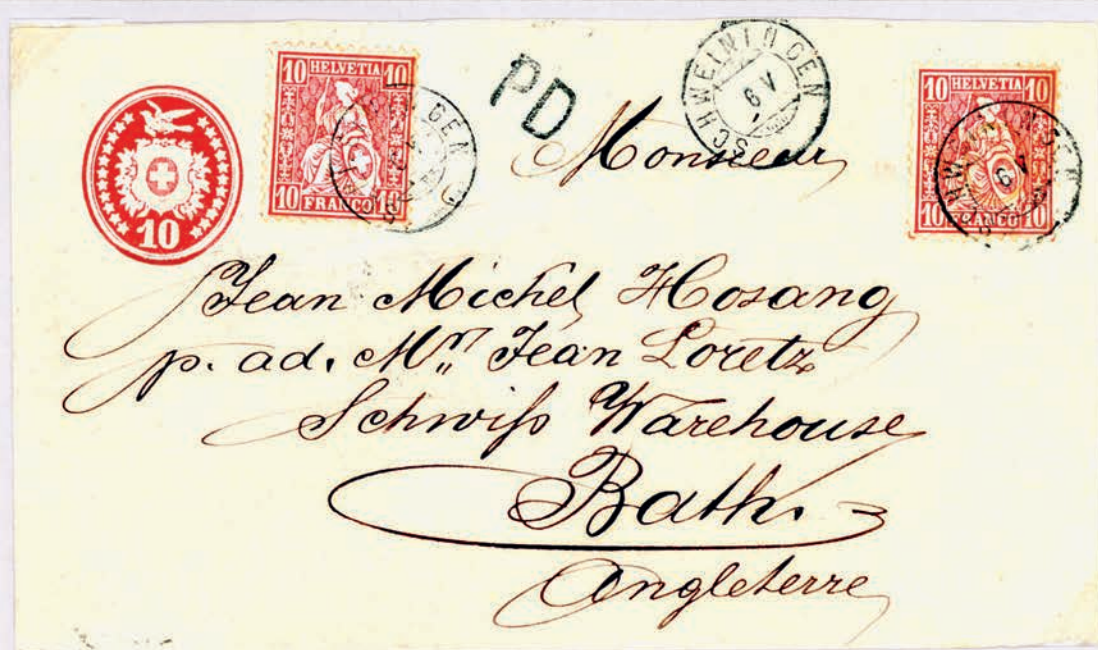 10 HELVETIA 10
10 FRANCO 10
10
PD
SCHWEININGEN
6 V
10 HELVETIA 10
10 FRANCO 10
6 V
Monsieur
Jean Michel Hosang
p. ad. Mr. Jean Loretz
Schwiſs Warehouse
Bath.
Angleterre